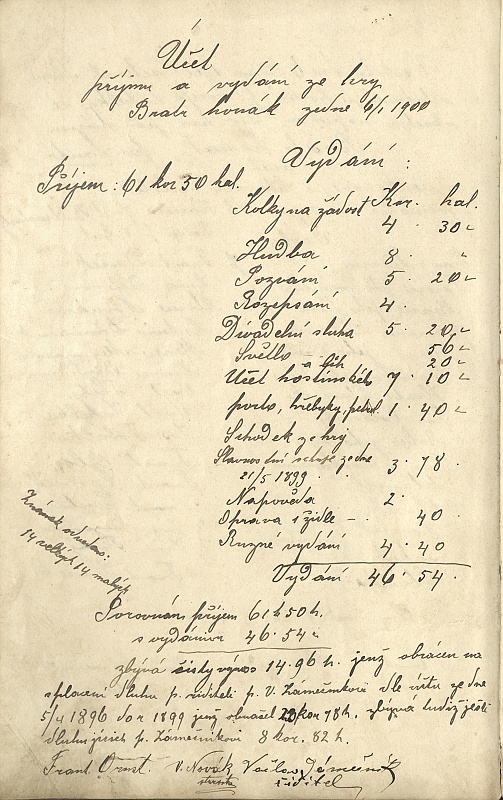 Účet
příjmu a vydání ze hry
Bratr honák ze dne 6/1 1900
Vydání:
Příjem: 61 kor 50 hal.
Kolky na žádost Kor. hal.
4 · 30 "
Hudba 8 · "
Pozvání 5 · 20 "
Rozepsání 4 ·
Divadelní sluha 5 · 20 "
Světlo 56 "
a líh 20 "
Účet hostinského 7 · 10 "
porto, hřebyky, petrol. 1 · 40 "
Schodek ze hry
Slavnostní schůze ze dne 3 · 78 ·
21/5 1899
Napověda 2 ·
Oprava 1 židle — · 40
Ruzné vydání 4 · 40
Vydání 46 · 54 ·
Známek odvedeno:
14 velkých 14 malých
Porovnám příjem 61 h 50 h.
s vydáním 46 · 54 "
zbývá čistý výnos 14 · 96 h. jenž obrácen na
splacení dluhu p. řediteli p. V. Zámečníkovi dle účtu ze dne
5/4 1896 do r 1899 jenž obnášel kor 78 h. zbývá tudíž ještě
dluhu p. Zámečníkovi 8 kor. 82 h.
Frant. V. Novák, Václav
učitel